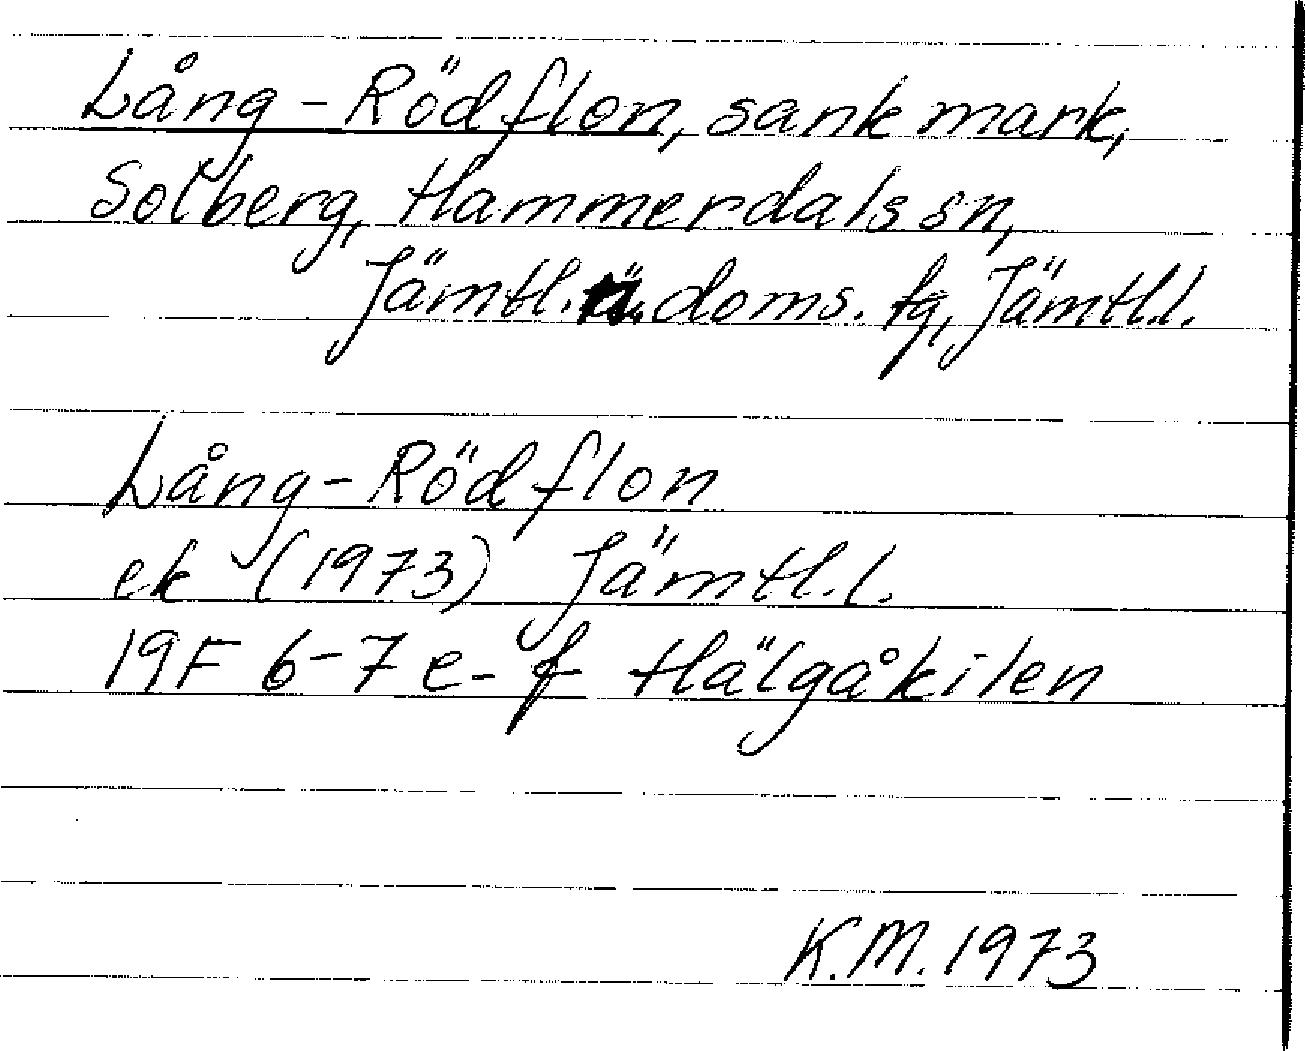 Lång-Rödflon, sank mark,
Solberg, Hammerdals sn,
Jämtl. n. doms. tg, Jämtl.l.
Lång-Rödflon
ek (1973) Jämtl.l.
19F 6-7 e-f Hälgåkilen
K.M. 1973